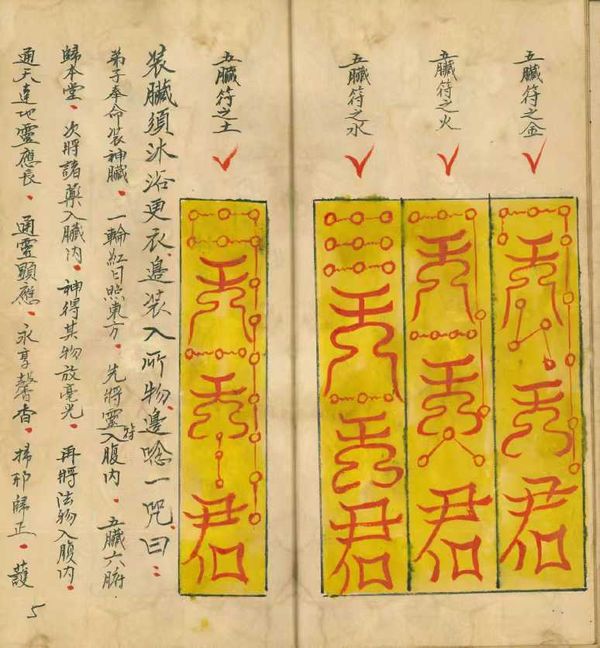 五臟符之金
五臟符之火
五臟符之水
五臟符之土
君
君
君
君
裝臟須沐浴更衣、邊裝入所物、邊唸一咒、曰：
弟子奉命裝神臟、一輪紅日照東方、先將靈符入腹內、五臟六腑
歸本堂、次將諸藥入臟內、神得其物放毫光、再將法物入腹內、
通天達地靈應長、通靈顯應、永享馨香、掃邪歸正、護
5